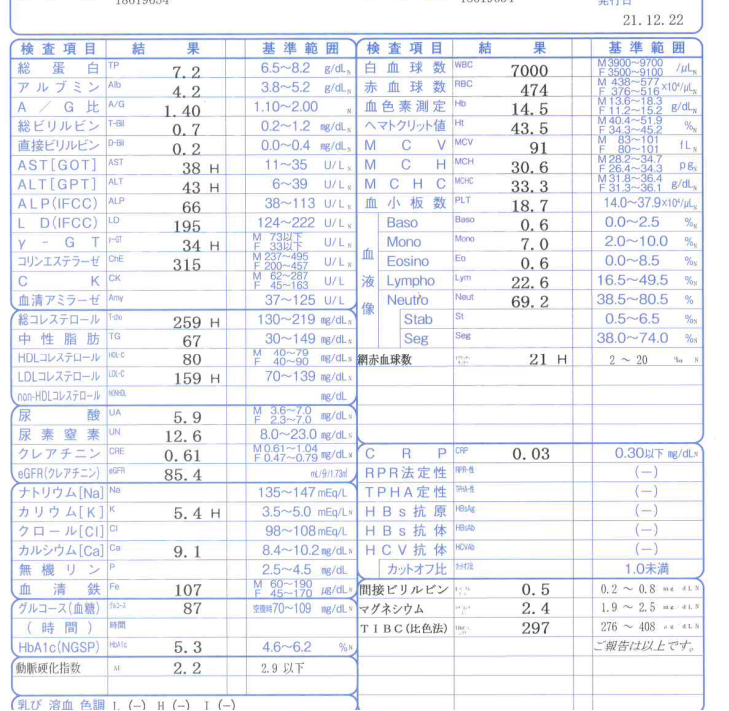 21.12.22
検査項目 結果 基準範囲
総蛋白 TP 7.2 6.5〜8.2 g/dL
アルブミン Alb 4.2 3.8〜5.2 g/dL
A／G比 A/G 1.40 1.10〜2.00
総ビリルビン T-Bil 0.7 0.2〜1.2 mg/dL
直接ビリルビン D-Bil 0.2 0.0〜0.4 mg/dL
AST[GOT] AST 38 H 11〜35 U/L
ALT[GPT] ALT 43 H 6〜39 U/L
ALP(IFCC) ALP 66 38〜113 U/L
LD(IFCC) LD 195 124〜222 U/L
γ-GT γ-GT 34 H M 73以下 F 33以下 U/L
コリンエステラーゼ ChE 315 M 237〜495 F 200〜457 U/L
CK CK M 62〜287 F 45〜163 U/L
血清アミラーゼ Amy 37〜125 U/L
総コレステロール T-cho 259 H 130〜219 mg/dL
中性脂肪 TG 67 30〜149 mg/dL
HDLコレステロール HDL-C 80 M 40〜79 F 40〜90 mg/dL
LDLコレステロール LDL-C 159 H 70〜139 mg/dL
non-HDLコレステロール mg/dL
尿酸 UA 5.9 M 3.6〜7.0 F 2.3〜7.0 mg/dL
尿素窒素 UN 12.6 8.0〜23.0 mg/dL
クレアチニン CRE 0.61 M 0.61〜1.04 F 0.47〜0.79 mg/dL
eGFR(クレアチニン) eGFR 85.4 mL/分/1.73㎡
ナトリウム[Na] Na 135〜147 mEq/L
カリウム[K] K 5.4 H 3.5〜5.0 mEq/L
クロール[Cl] Cl 98〜108 mEq/L
カルシウム[Ca] Ca 9.1 8.4〜10.2 mg/dL
無機リン P 2.5〜4.5 mg/dL
血清鉄 Fe 107 M 60〜190 F 45〜170 μg/dL
グルコース(血糖) グルコース 87 空腹時70〜109 mg/dL
(時間) 時間
HbA1c(NGSP) HbA1c 5.3 4.6〜6.2 %
動脈硬化指数 AI 2.2 2.9 以下
乳び 溶血 色調 L (−) H (−) I (−)
検査項目 結果 基準範囲
白血球数 WBC 7000 M 3900〜9700 F 3500〜9100 /μL
赤血球数 RBC 474 M 438〜577 F 376〜516 ×10⁴/μL
血色素測定 Hb 14.5 M 13.6〜18.3 F 11.2〜15.2 g/dL
ヘマトクリット値 Ht 43.5 M 40.4〜51.9 F 34.3〜45.2 %
MCV MCV 91 M 83〜101 F 80〜101 fL
MCH MCH 30.6 M 28.2〜34.7 F 26.4〜34.3 pg
MCHC MCHC 33.3 M 31.8〜36.4 F 31.3〜36.1 g/dL
血小板数 PLT 18.7 14.0〜37.9×10⁴/μL
血液像
Baso Baso 0.6 0.0〜2.5 %
Mono Mono 7.0 2.0〜10.0 %
Eosino Eo 0.6 0.0〜8.5 %
Lympho Lym 22.6 16.5〜49.5 %
Neutro Neut 69.2 38.5〜80.5 %
Stab St 0.5〜6.5 %
Seg Seg 38.0〜74.0 %
網赤血球数 21 H 2 〜 20 ‰
CRP CRP 0.03 0.30以下 mg/dL
RPR法定性 RPR-性 (−)
TPHA定性 TPHA-性 (−)
HBs抗原 HBsAg (−)
HBs抗体 HBsAb (−)
HCV抗体 HCVAb (−)
カットオフ比 1.0未満
間接ビリルビン 0.5 0.2 〜 0.8 mg dL
マグネシウム 2.4 1.9 〜 2.5 mg dL
TIBC(比色法) 297 276 〜 408 dL
ご報告は以上です。